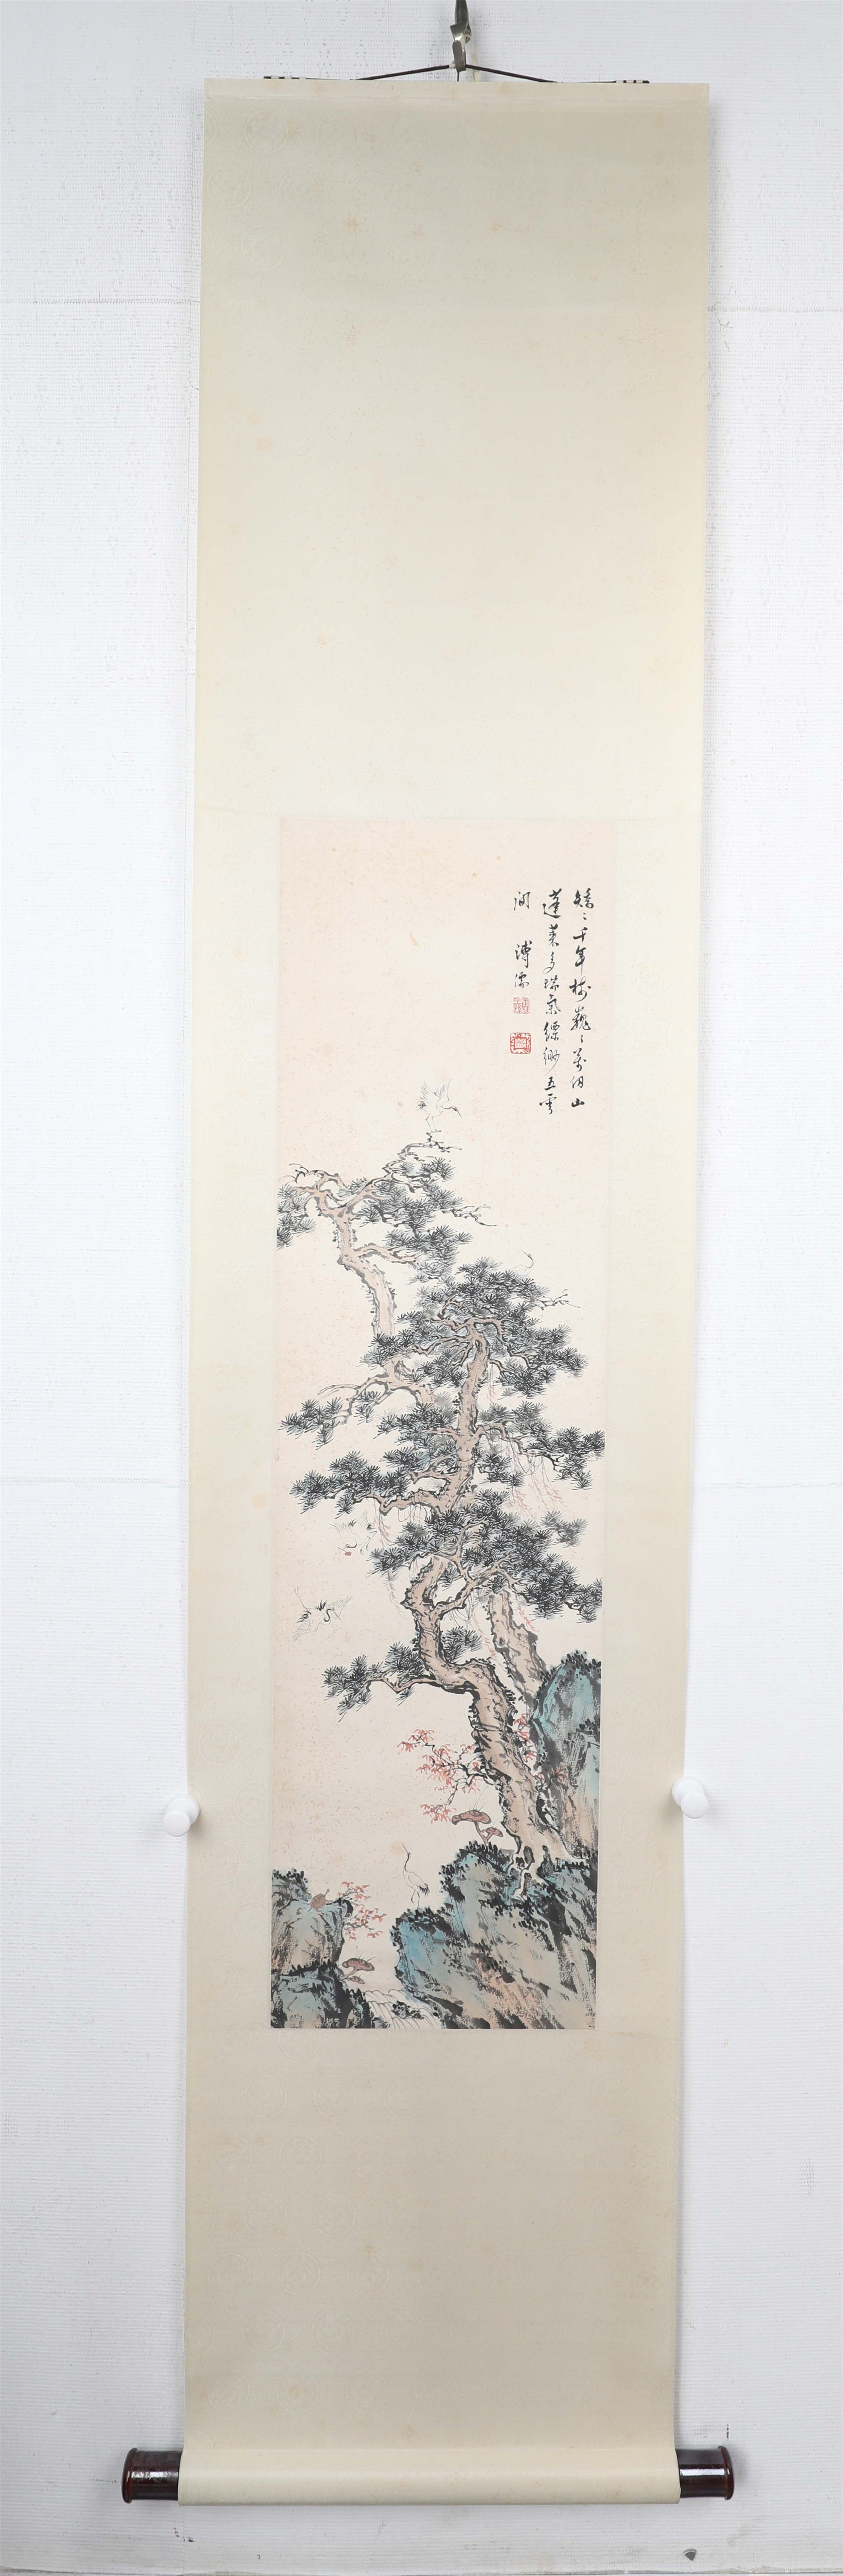 矯〻千年樹巍〻萬仞山
蓬萊多瑞氣縹緲五雲
間 溥儒